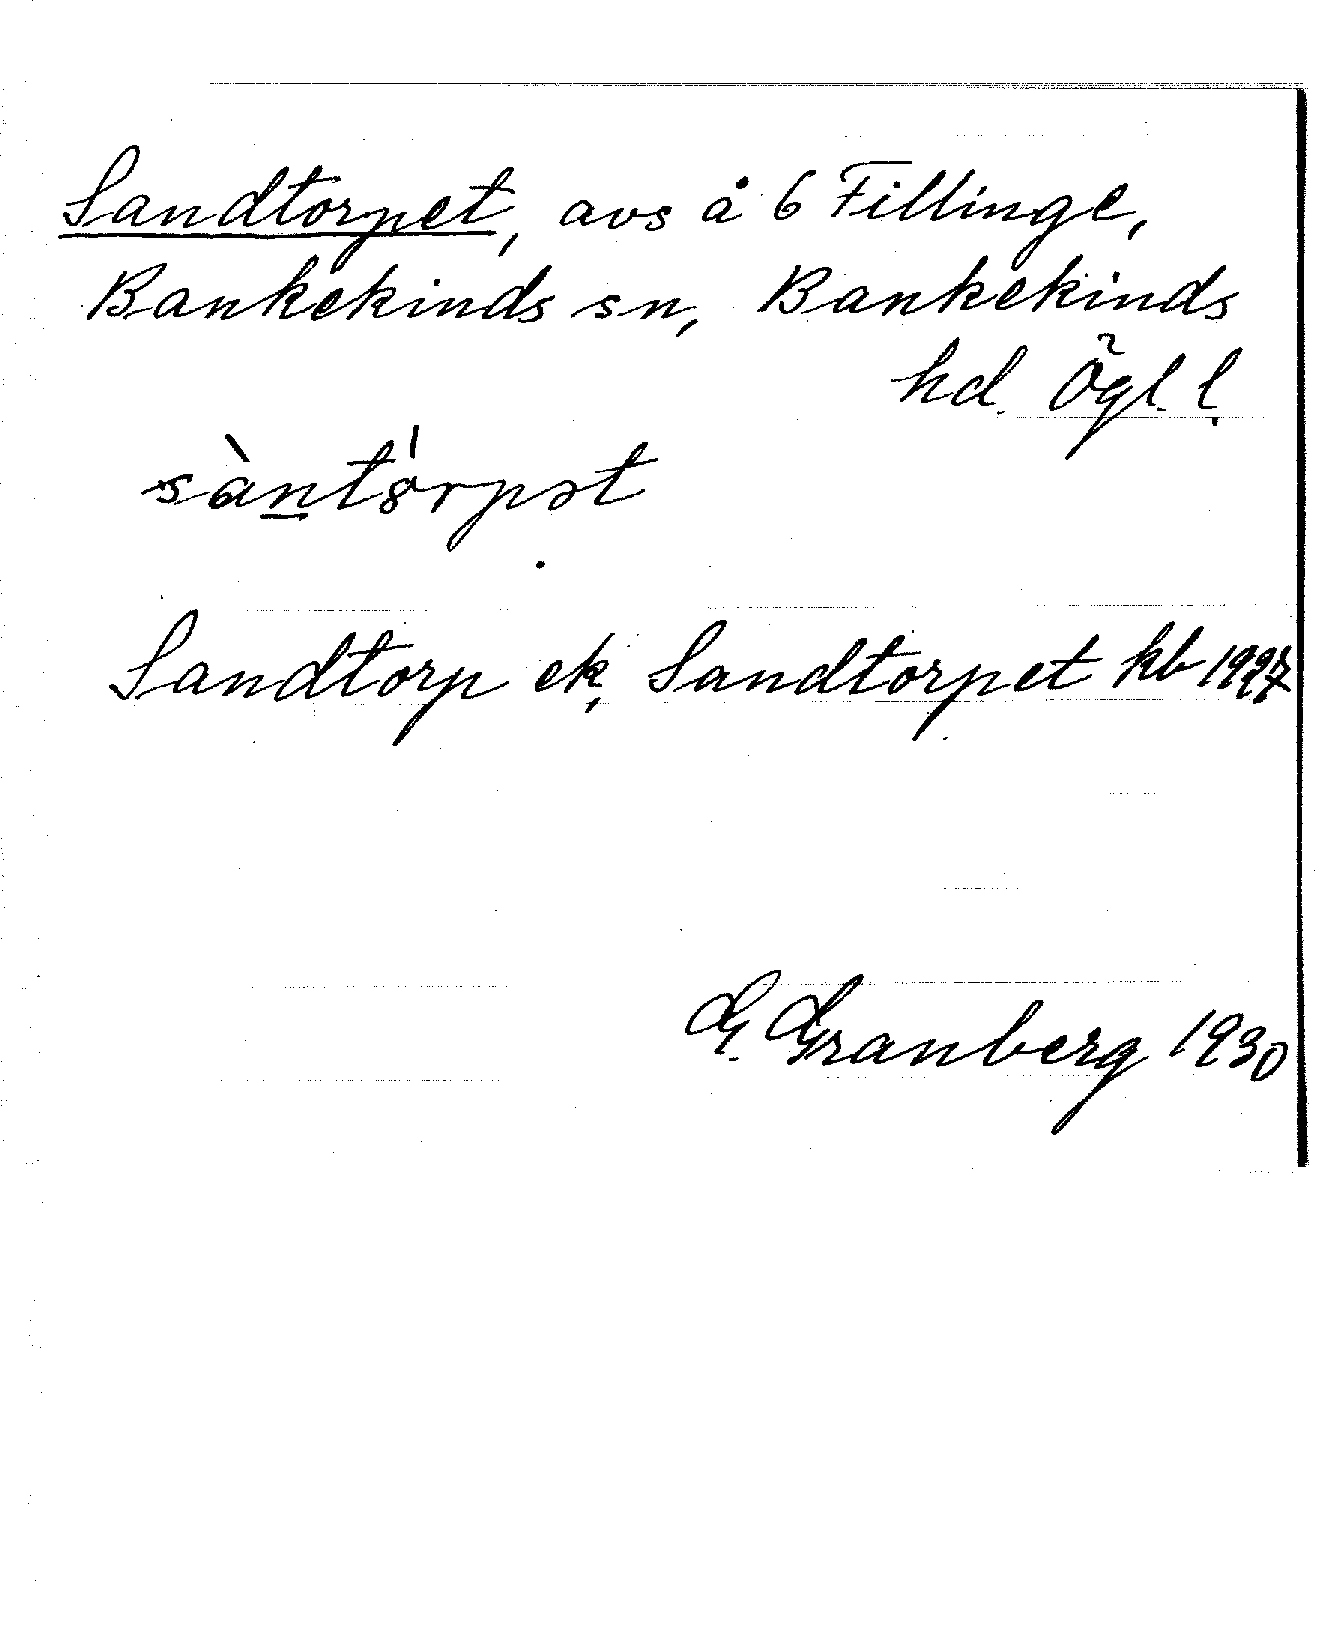 Sandtorpet, avs å 6 Fillinge,
Bankekinds sn, Bankekinds
hd. Ögl. l.
sàntórpət
Sandtorp ek, Sandtorpet kb 1927
G. Granberg 1930